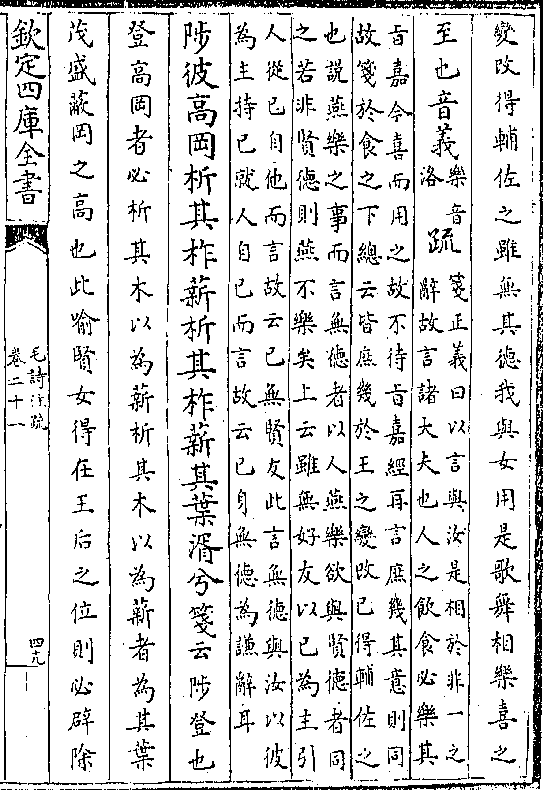 變改得輔佐之雖無其德我與女用是歌舞相樂喜之
至也音義樂音洛疏箋正義曰以言與汝是相於非一之
辭故言諸大夫也人之飲食必樂其
旨嘉令喜而用之故不待旨嘉經再言庶幾其意則同
故箋於食之下總云皆庶幾於王之變改已得輔佐之
也説燕樂之事而言無德者以人燕樂欲與賢德者同
之若非賢德則燕不樂矣上云雖無好友以已為主引
人從已自他而言故云已無賢友此言無德與汝以彼
為主持已就人自已而言故云已身無德為謙辭耳
陟彼高岡析其柞薪析其柞薪其葉湑兮箋云陟登也
登高岡者必析其木以為薪析其木以為薪者為其葉
茂盛蔽岡之高也此喻賢女得在王后之位則必辟除
欽定四庫全書
毛詩注疏
卷二十一
四九